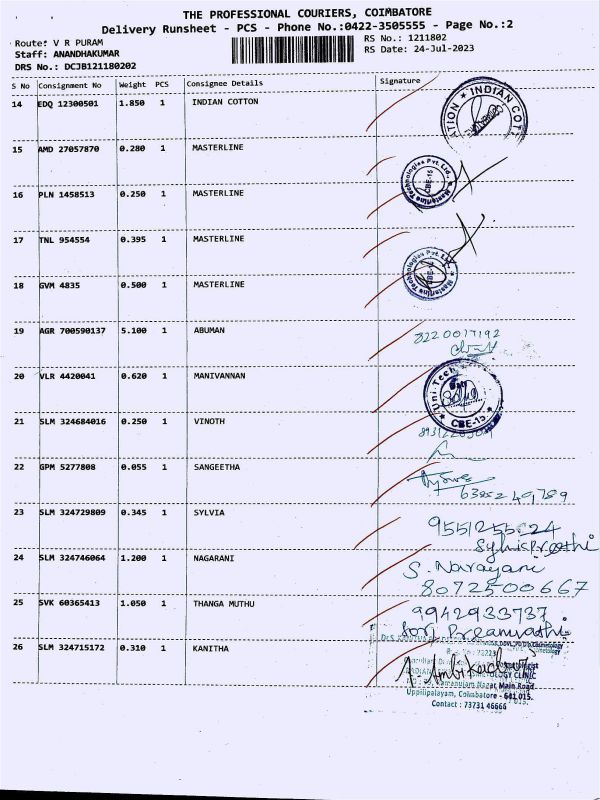 THE PROFESSIONAL COURIERS, COIMBATORE
Delivery Runsheet - PCS - Phone No.:0422-3505555 - Page No.:2
Route: V R PURAM
RS No.: 1211802
Staff: ANANDHAKUMAR
RS Date: 24-Jul-2023
DRS No.: DCJB121180202
S No Consignment No Weight PCS Consignee Details Signature
14 EDQ 12300501 1.850 1 INDIAN COTTON
ATION * INDIAN COT
15 AMD 27057870 0.280 1 MASTERLINE
Masterline Technologies Pvt. Ltd. CBE-15
16 PLN 1458513 0.250 1 MASTERLINE
17 TNL 954554 0.395 1 MASTERLINE
Masterline Technologies Pvt. Ltd.
18 GVM 4835 0.500 1 MASTERLINE
19 AGR 700590137 5.100 1 ABUMAN
8220017192
20 VLR 4420041 0.620 1 MANIVANNAN
Uni.Tech
* CBE-15. *
21 SLM 324684016 0.250 1 VINOTH
22 GPM 5277808 0.055 1 SANGEETHA
23 SLM 324729809 0.345 1 SYLVIA
24 SLM 324746064 1.200 1 NAGARANI
S. Narayani
8072500667
25 SVK 60365413 1.050 1 THANGA MUTHU
9942933737
26 SLM 324715172 0.310 1 KANITHA
Main Road
Uppilipalayam, Coimbatore - 641 015.
Contact : 73731 46666